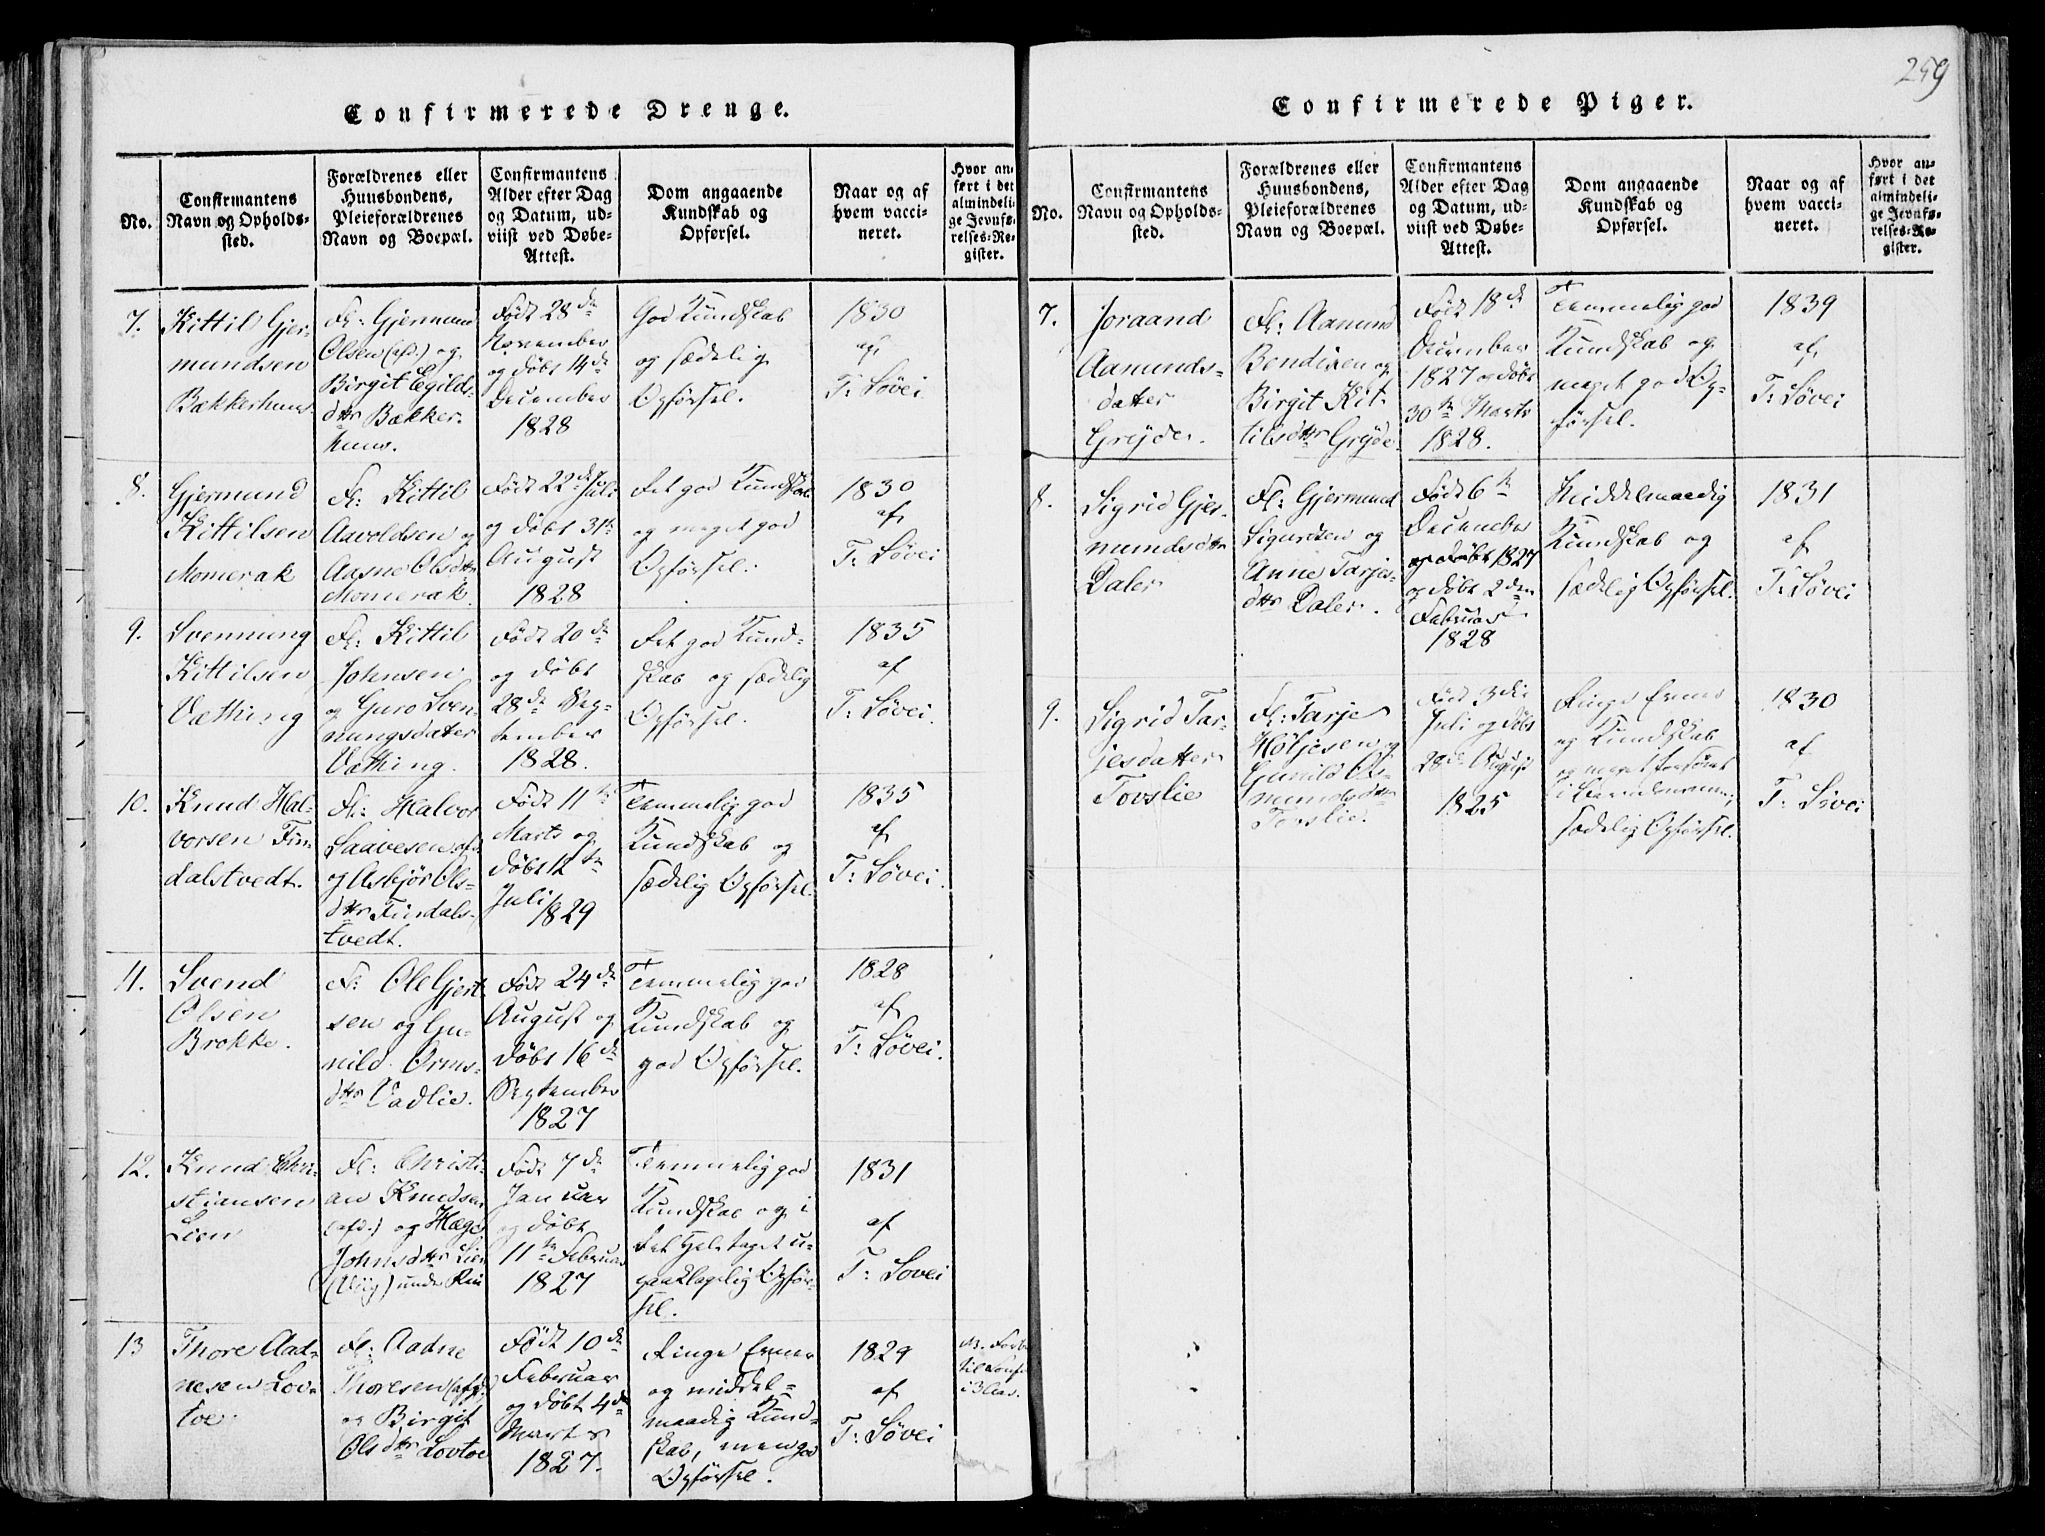 259
Confirmerede Drenge.
No.
Confirmantens
Navn og Opholds-
sted.
Forældrenes eller
Huusbondens,
Pleieforældrenes
Navn og Boepæl.
Confirmantens
Alder efter Dag
og Datum, ud-
viist ved Døbe-
Attest.
Dom angaaende
Kundskab og
Opførsel.
Naar og af
hvem vacci-
neret.
Hvor an-
ført i det
almindeli-
ge Jevnfø-
relses-Re-
gister.
7.
Kittil Gjer-
mundsen
Bækkerhuus
Fl: Gjermund
Olsen (afd.) og
Birgit Egilds-
dtr Bækker-
huus.
Født 28de
November
og døbt 14de
December
1828
God Kundskab
og sædelig
Opførsel.
1830
af
T: Løvei
8.
Gjermund
Kittilsen
Momerak
Fl: Kittil
Aavoldsen og
Aasne Olsdtr
Momerak.
Født 22de Juli
og døbt 31te
August
1828
Ret god Kundskab
og meget god
Opførsel.
1830
af
T: Løvei
9.
Svennung
Kittilsen
Væthing
Fl: Kittil
Johnsen
og Guro Sven-
nungsdatter
Væthing.
Født 20de
og døbt
28de Sep-
tember
1828.
Ret god Kund-
skab og sædelig
Opførsel.
1835
af
T: Løvei.
10.
Knud Hal-
vorsen Fin-
dalstvedt.
Fl: Halvor
Saavesen afd.
og Asbjør Ols-
dtr Findals-
tvedt.
Født 11te
Marts og
døbt 12te
Juli 1829
Temmelig god
Kundskab og
sædelig Opførsel.
1835
af
T: Løvei.
11.
Svend
Olsen
Brokke.
Fl: Ole Gjert-
sen og Gu-
nild Orms-
dtr Vadlie.
Født 24de
August og
døbt 16de
September
1827
Temmelig god
Kundskab og
god Opførsel.
1828
af
T: Løvei.
12.
Knud Chri-
stiansen
Lien
Fl: Christi-
an Knudsen
(afd.) og Hæge
Johnsdtr Lien
(Viig) under
Født 7de
Januar
og døbt
11te Februar
1827
Temmelig god
Kundskab og i
det Hele taget u-
paaklagelig Opfør-
sel.
1831
af
T: Løvei
13
Thore Aad-
nesen Lov-
toe
Fl: Aadne
Thoresen (afd.)
og Birgit
Olsdtr Lovtoe
Født 10de
Februar
og døbt 4de
Marts
1827.
Ringe Evner
og middel-
maadig Kund-
skab, men god
Opførsel.
1829
af
T: Løvei
Confirmerede Piger.
No.
Confirmantens
Navn og Opholds-
sted.
Forældrenes eller
Huusbondens,
Pleieforældrenes
Navn og Boepæl.
Confirmantens
Alder efter Dag
og Datum, ud-
viist ved Døbe-
Attest.
Dom angaaende
Kundskab og
Opførsel.
Naar og af
hvem vacci-
neret.
Hvor an-
ført i det
almindeli-
ge Jevnfø-
relses-Re-
gister.
7.
Joraand
Aamunds-
datter
Grejde.
Fl: Aamund
Bendixen og
Birgit Kit-
tilsdtr Grejde
Født 18de
December
1827 og døbt
30te Marts
1828.
Temmelig god
Kundskab og
meget god Op-
førsel.
1839
af
T: Løvei
8.
Sigrid Gjer-
mundsdtr
Dalen
Fl: Gjermund
Sigurdsen og
Anne Tarjes-
dtr Dalen.
Født 6te
December
og døbt 1827
og døbt 2den
Februar
1828
Middelmaadig
Kundskab og
sædelig Opførsel.
1831
af
T: Løvei
9.
Sigrid Tar-
jesdatter
Tovslie
Fl: Tarje
Høljesen og
Gunild Os-
mundsdtr
Tovslie.
Født 3die
Juli og døbt
28de August
1825
Ringe Evner
og Kundskab
og meget forsømt
i
sædelig Opførsel.
1830
af
T: Løvei